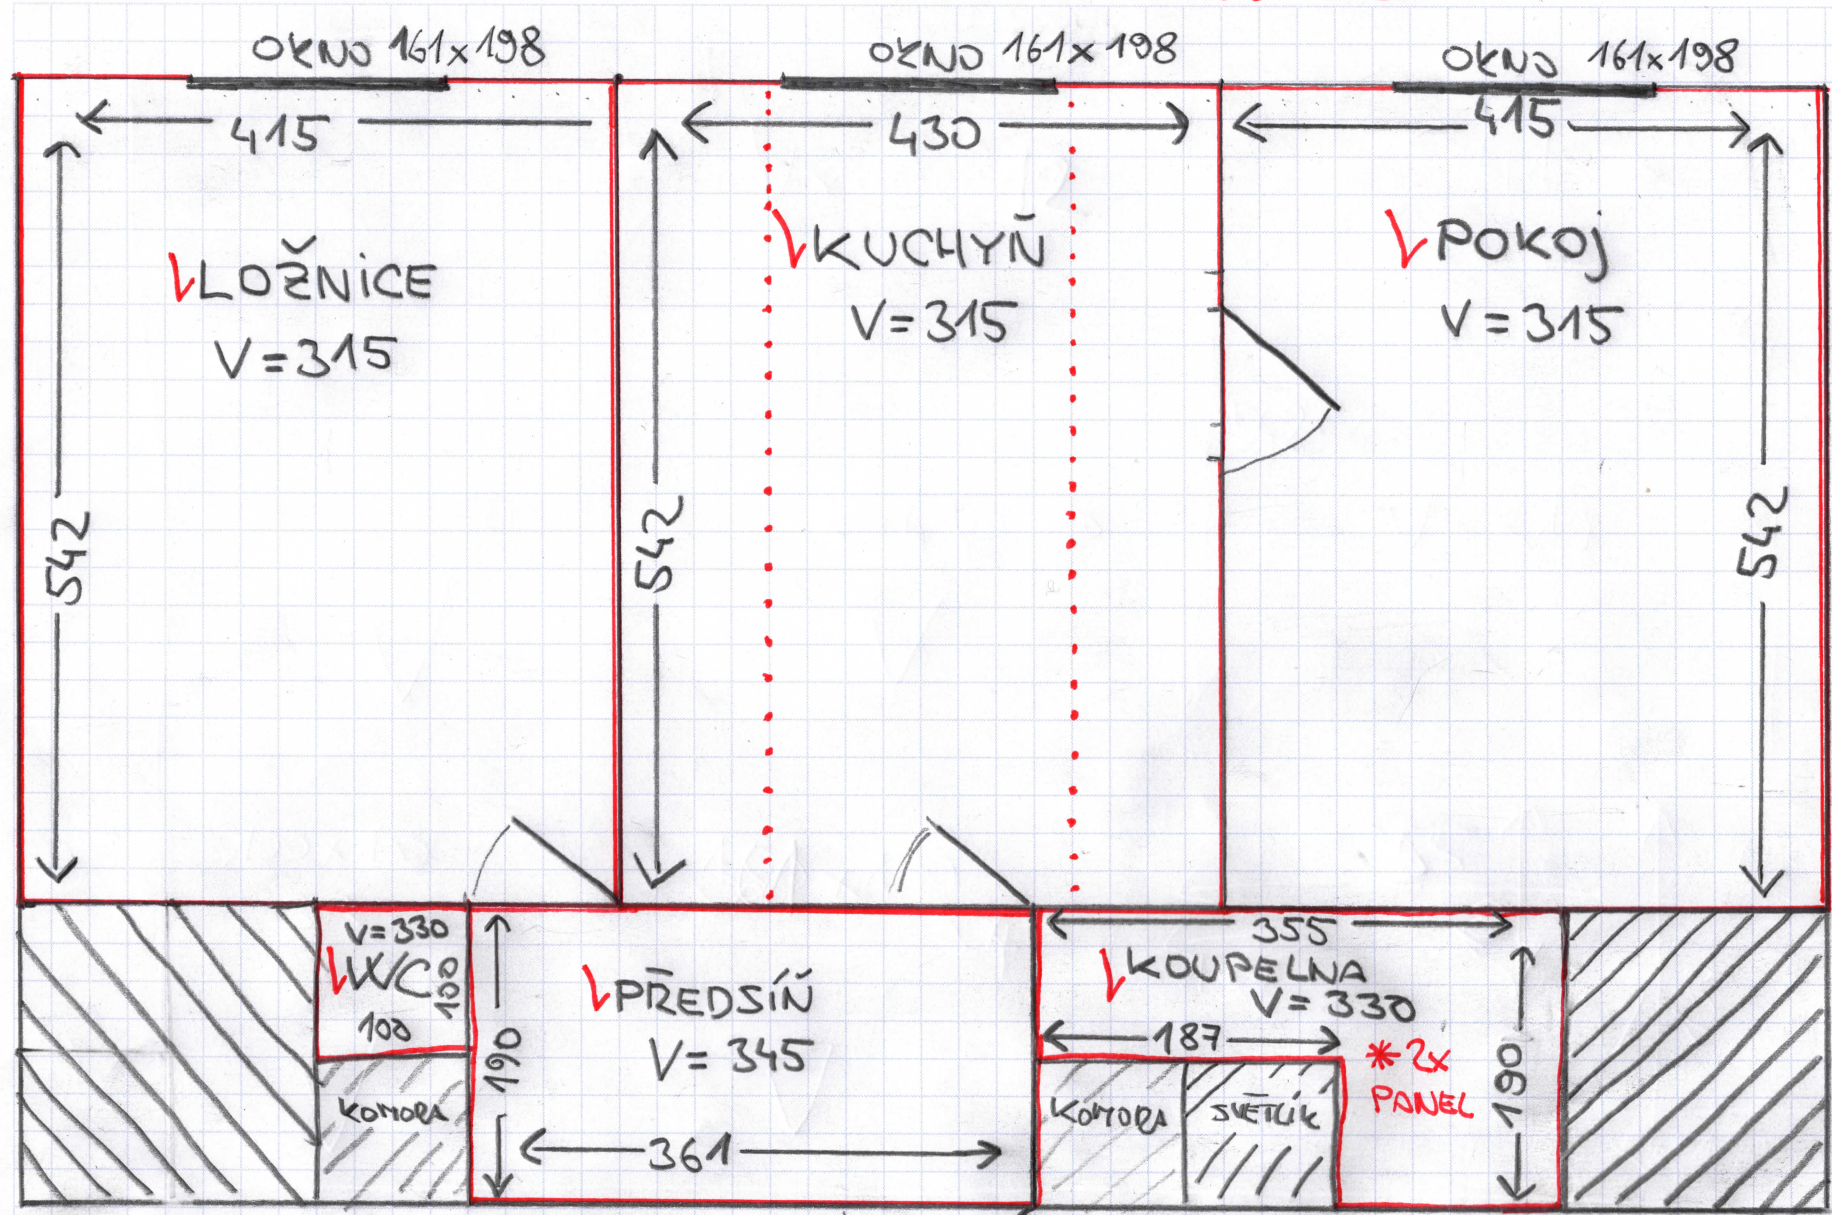 OKNO 161x198
OKNO 161x198
OKNO 161x198
415
430
415
LOŽNiCE
V=315
KUCHYŇ
V=315
POKOj
V=315
542
542
542
V=330
WC
100
100
KOMORA
190
PŘEDSÍŇ
V= 345
361
355
KOUPELNA
V= 330
187
* 2x
PANEL
190
KOMORA
SVĚTLÍK